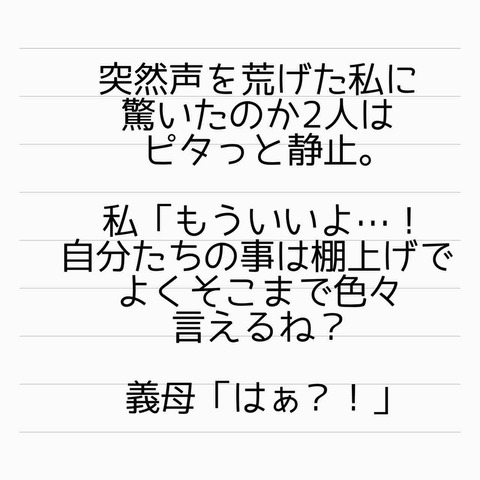 突然声を荒げた私に
驚いたのか2人は
ピタっと静止。
私「もういいよ…！
自分たちの事は棚上げで
よくそこまで色々
言えるね？
義母「はぁ？！」